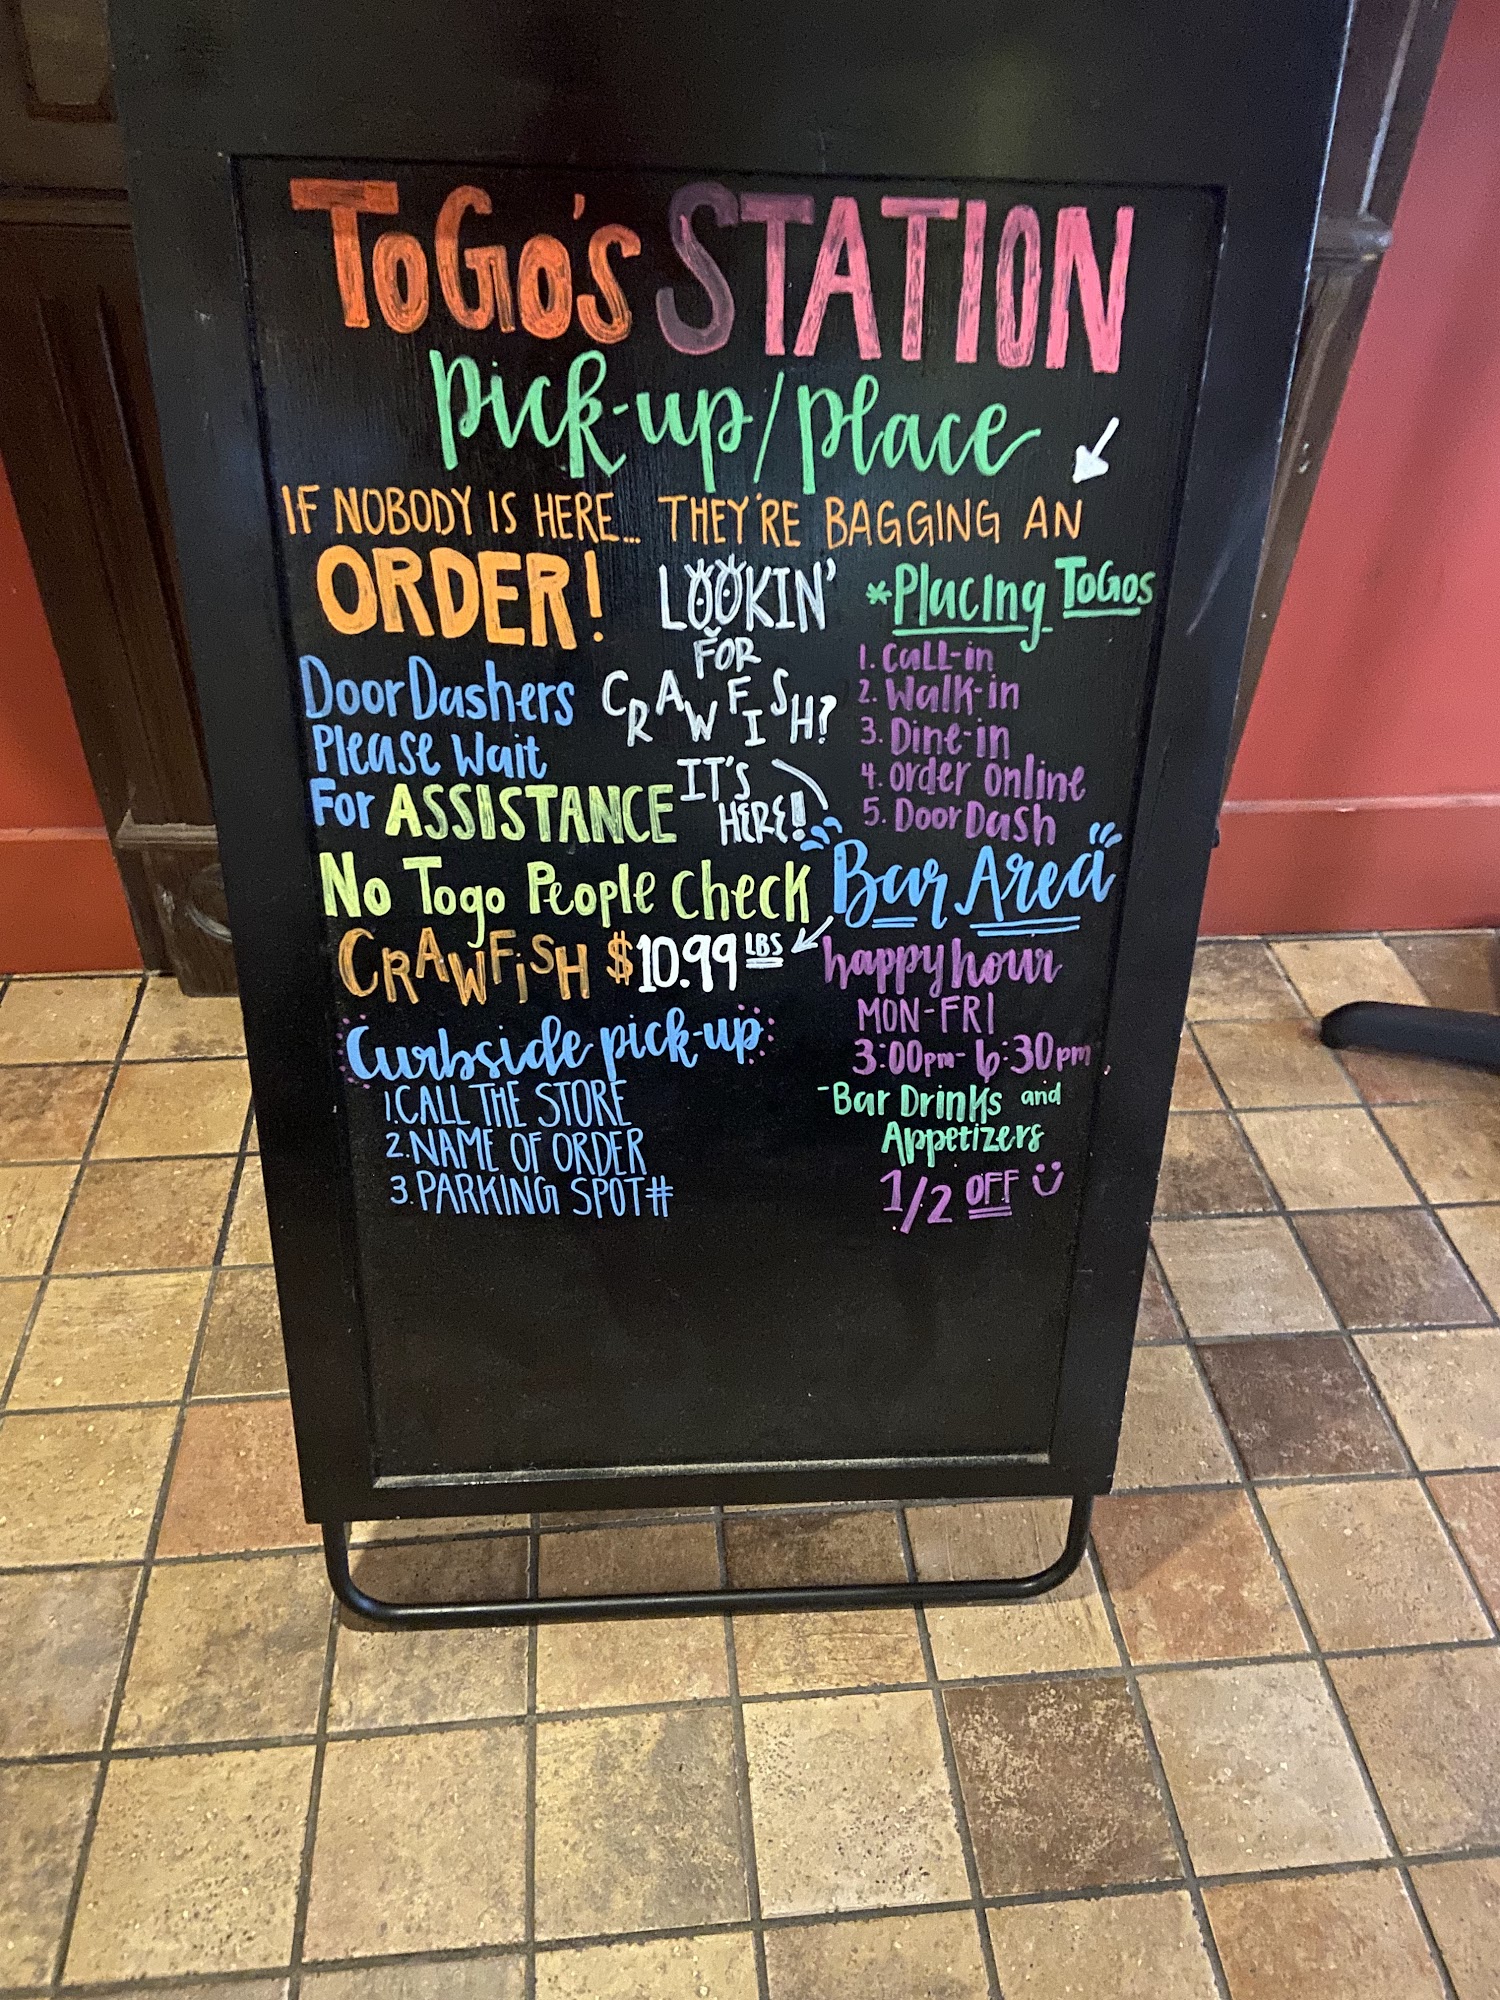 ToGo's STATION
Pick-up/Place
IF NOBODY IS HERE... THEY'RE BAGGING AN
ORDER!
DoorDashers
Please Wait
For ASSISTANCE
No Togo People Check
LOOKIN'
FOR
CRAWFISH?
IT'S
HERE!
*Placing ToGos
1. Call-in
2. Walk-in
3. Dine-in
4. Order Online
5. DoorDash
Bar Area
CRAWFISH $10.99 LBS
Curbside pick-up
1. CALL THE STORE
2. NAME OF ORDER
3. PARKING SPOT#
happy hour
MON-FRI
3:00pm-6:30pm
-Bar Drinks and
Appetizers
1/2 OFF